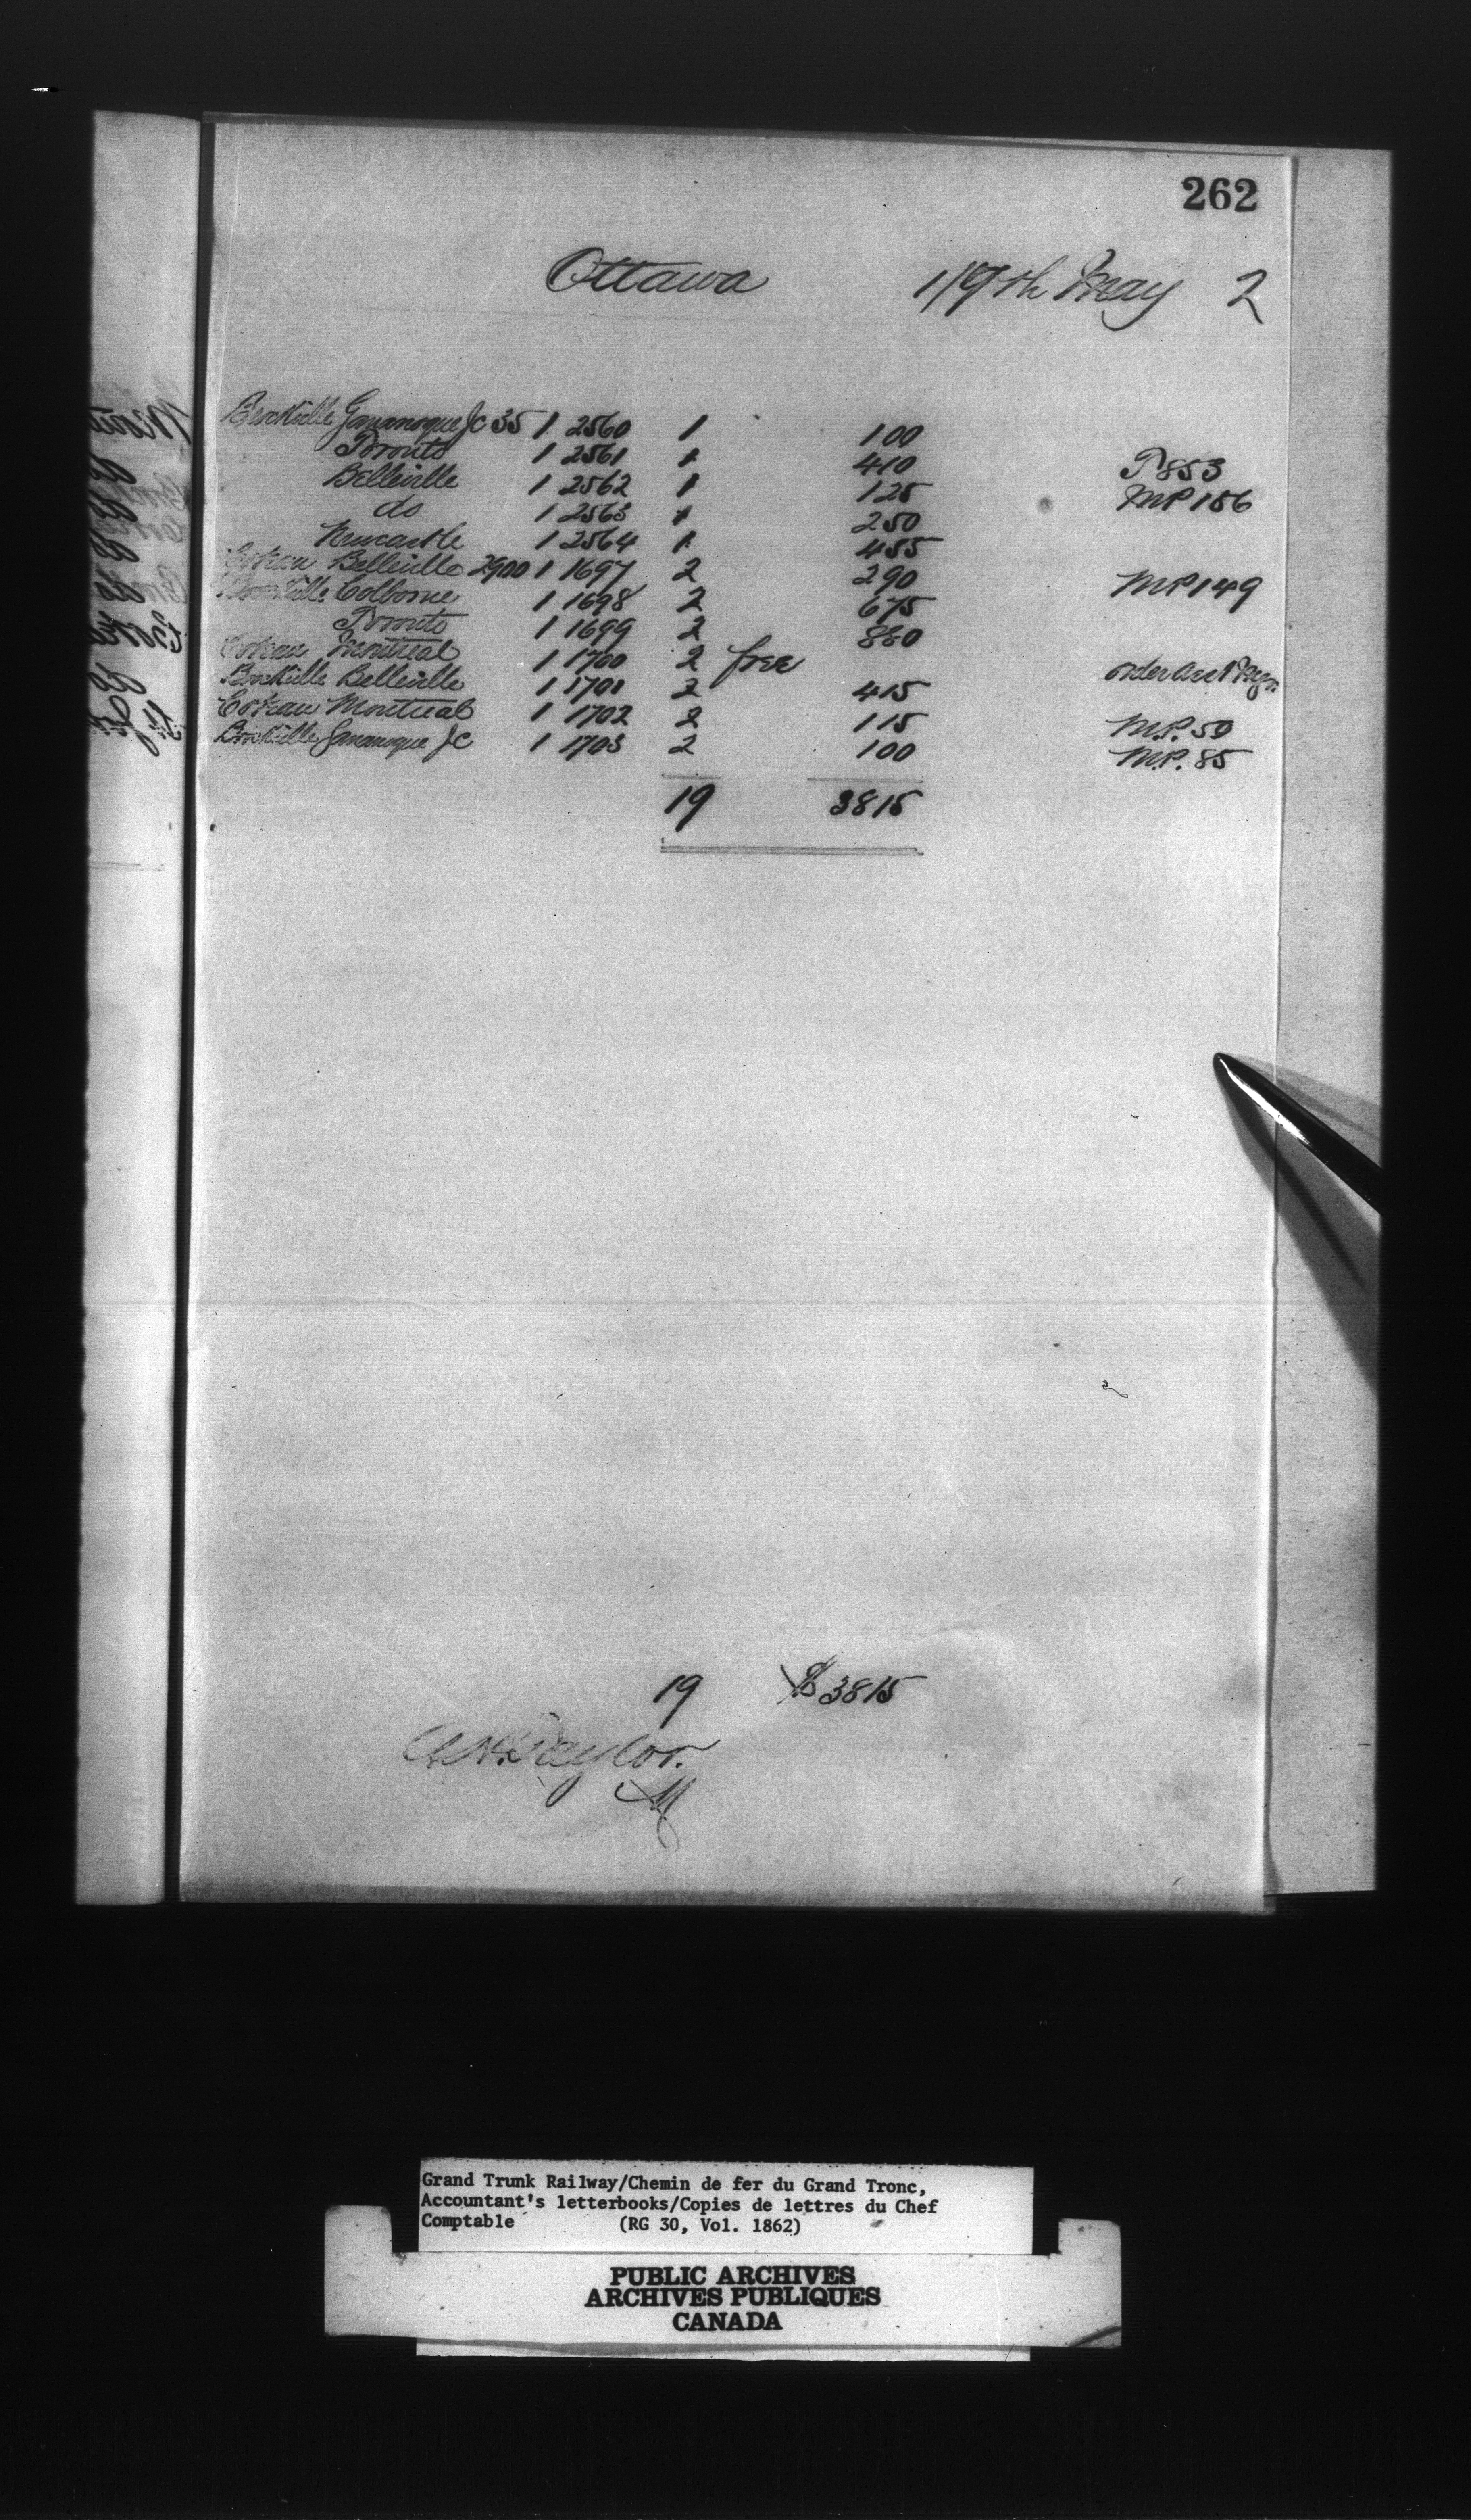 262
Ottawa 19th May 2
Brockville Gananoque Jc 35 1 2560 1 100
Toronto 1 2561 1 410 P853
Belleville 1 2562 1 125 MP156
do 1 2563 1 250
Newcastle 1 2564 1 455
Coteau Belleville 2900 1 1697 2 290 MP149
Brockville Colborne 1 1698 2 675
Toronto 1 1699 2 880
Coteau Montreal 1 1700 2 free order
Brockville Belleville 1 1701 2 415
Coteau Montreal 1 1702 2 115 M.P. 50
Brockville Gananoque Jc 1 1703 2 100 M.P. 85
19 3815
19 $3815
Taylor.
Grand Trunk Railway/Chemin de fer du Grand Tronc,
Accountant's letterbooks/Copies de lettres du Chef
Comptable (RG 30, Vol. 1862)
PUBLIC ARCHIVES
ARCHIVES PUBLIQUES
CANADA